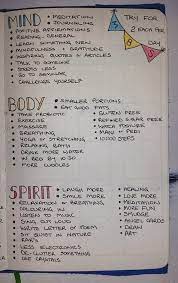 MIND
• MEDITATION
• JOURNALING
• POSITIVE AFFIRMATIONS
• READING GENERAL
• LEARN SOMETHING NEW
• MINDFULNESS + GRATITUDE
• INSPIRING QUOTES + ARTICLES
• TALK TO SOMEONE
• STRESS LESS
• GO TO SEMINAR
• CHALLENGE YOURSELF
TRY FOR
2 EACH PER
DAY
BODY
• SMALLER PORTIONS
• EAT GOOD FATS
• TAKE PROBIOTIC
• EXERCISE
• MASSAGE
• BREATHING
• YOGA + STRETCHING
• RELAXING BATH
• DRINK MORE WATER
• IN BED BY 10:30
• MORE VEGGIES
• GLUTEN FREE
• REFINED SUGAR FREE
• MANI + PEDI
• 10,000 STEPS
SPIRIT
• LAUGH MORE
• SMILE MORE
• RELAXATION + BREATHING
• COLOURING IN
• LISTEN TO MUSIC
• SING OUT LOUD
• WRITE LETTER OR POEM
• SIT QUIET IN NATURE
• LESS ELECTRONICS
• DE-CLUTTER SOMETHING
• USE CRYSTALS
• HEALING
• LOVE MORE
• MEDITATION
• MORE FUN
• SMUDGE
• ANGEL CARDS
• DREAM
• ART